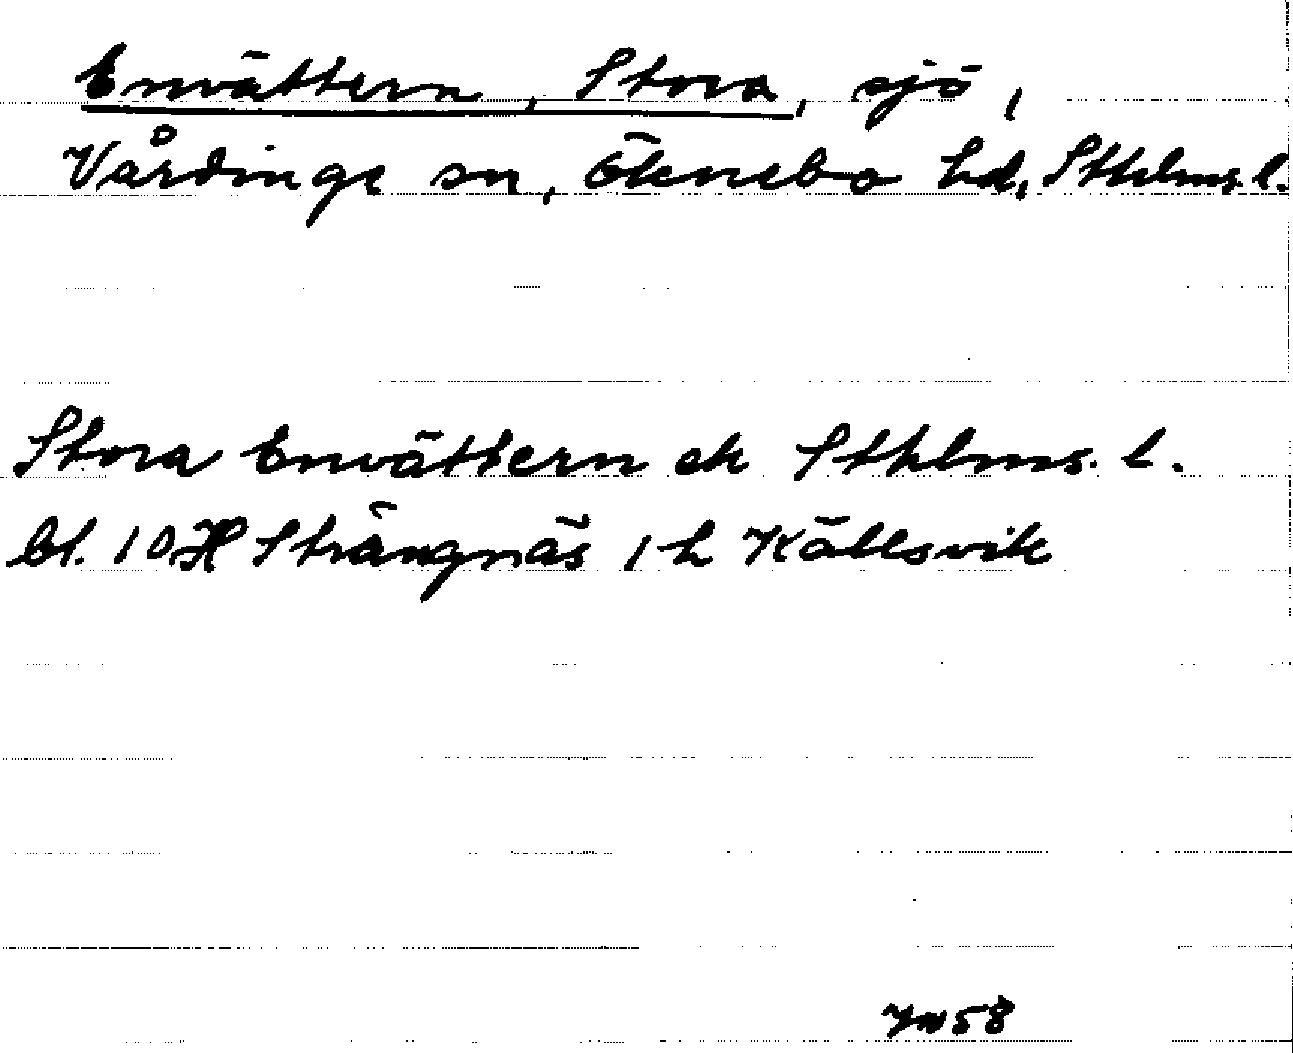 Envättern, Stora, sjö,
Vårdinge sn, Öknebo hd, Sthlms. l.
Stora Envättern ek Sthlms. l.
bl. 10H Strängnäs 1 h Källsvik
58